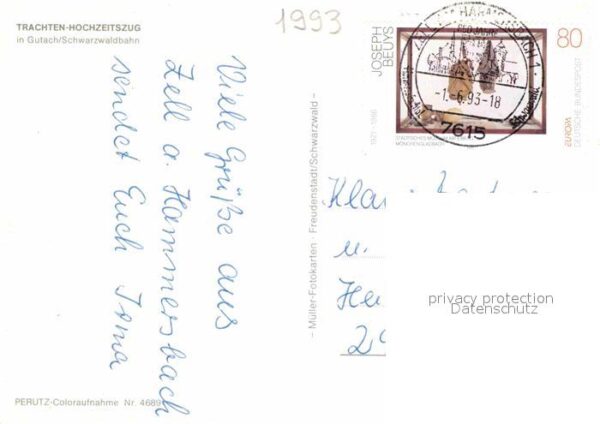 TRACHTEN-HOCHZEITSZUG
in Gutach/Schwarzwaldbahn
1993
Viele Grüße aus
Zell a. Hammersbach
sendet Euch Irma
PERUTZ-Coloraufnahme Nr. 4689
– Müller-Fotokarten · Freudenstadt/Schwarzwald –
JOSEPH
BEUYS
1921 - 1986
80
DEUTSCHE BUNDESPOST
EUROPA
STÄDTISCHES MUSEUM
MÖNCHENGLADBACH
HARMERSBACH 1
-1.-6.93-18
7615
u.
privacy protection
Datenschutz